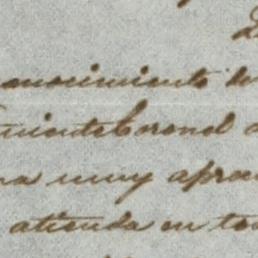 conocimiento de
niente Coronel
na muy aprec
atienda en to